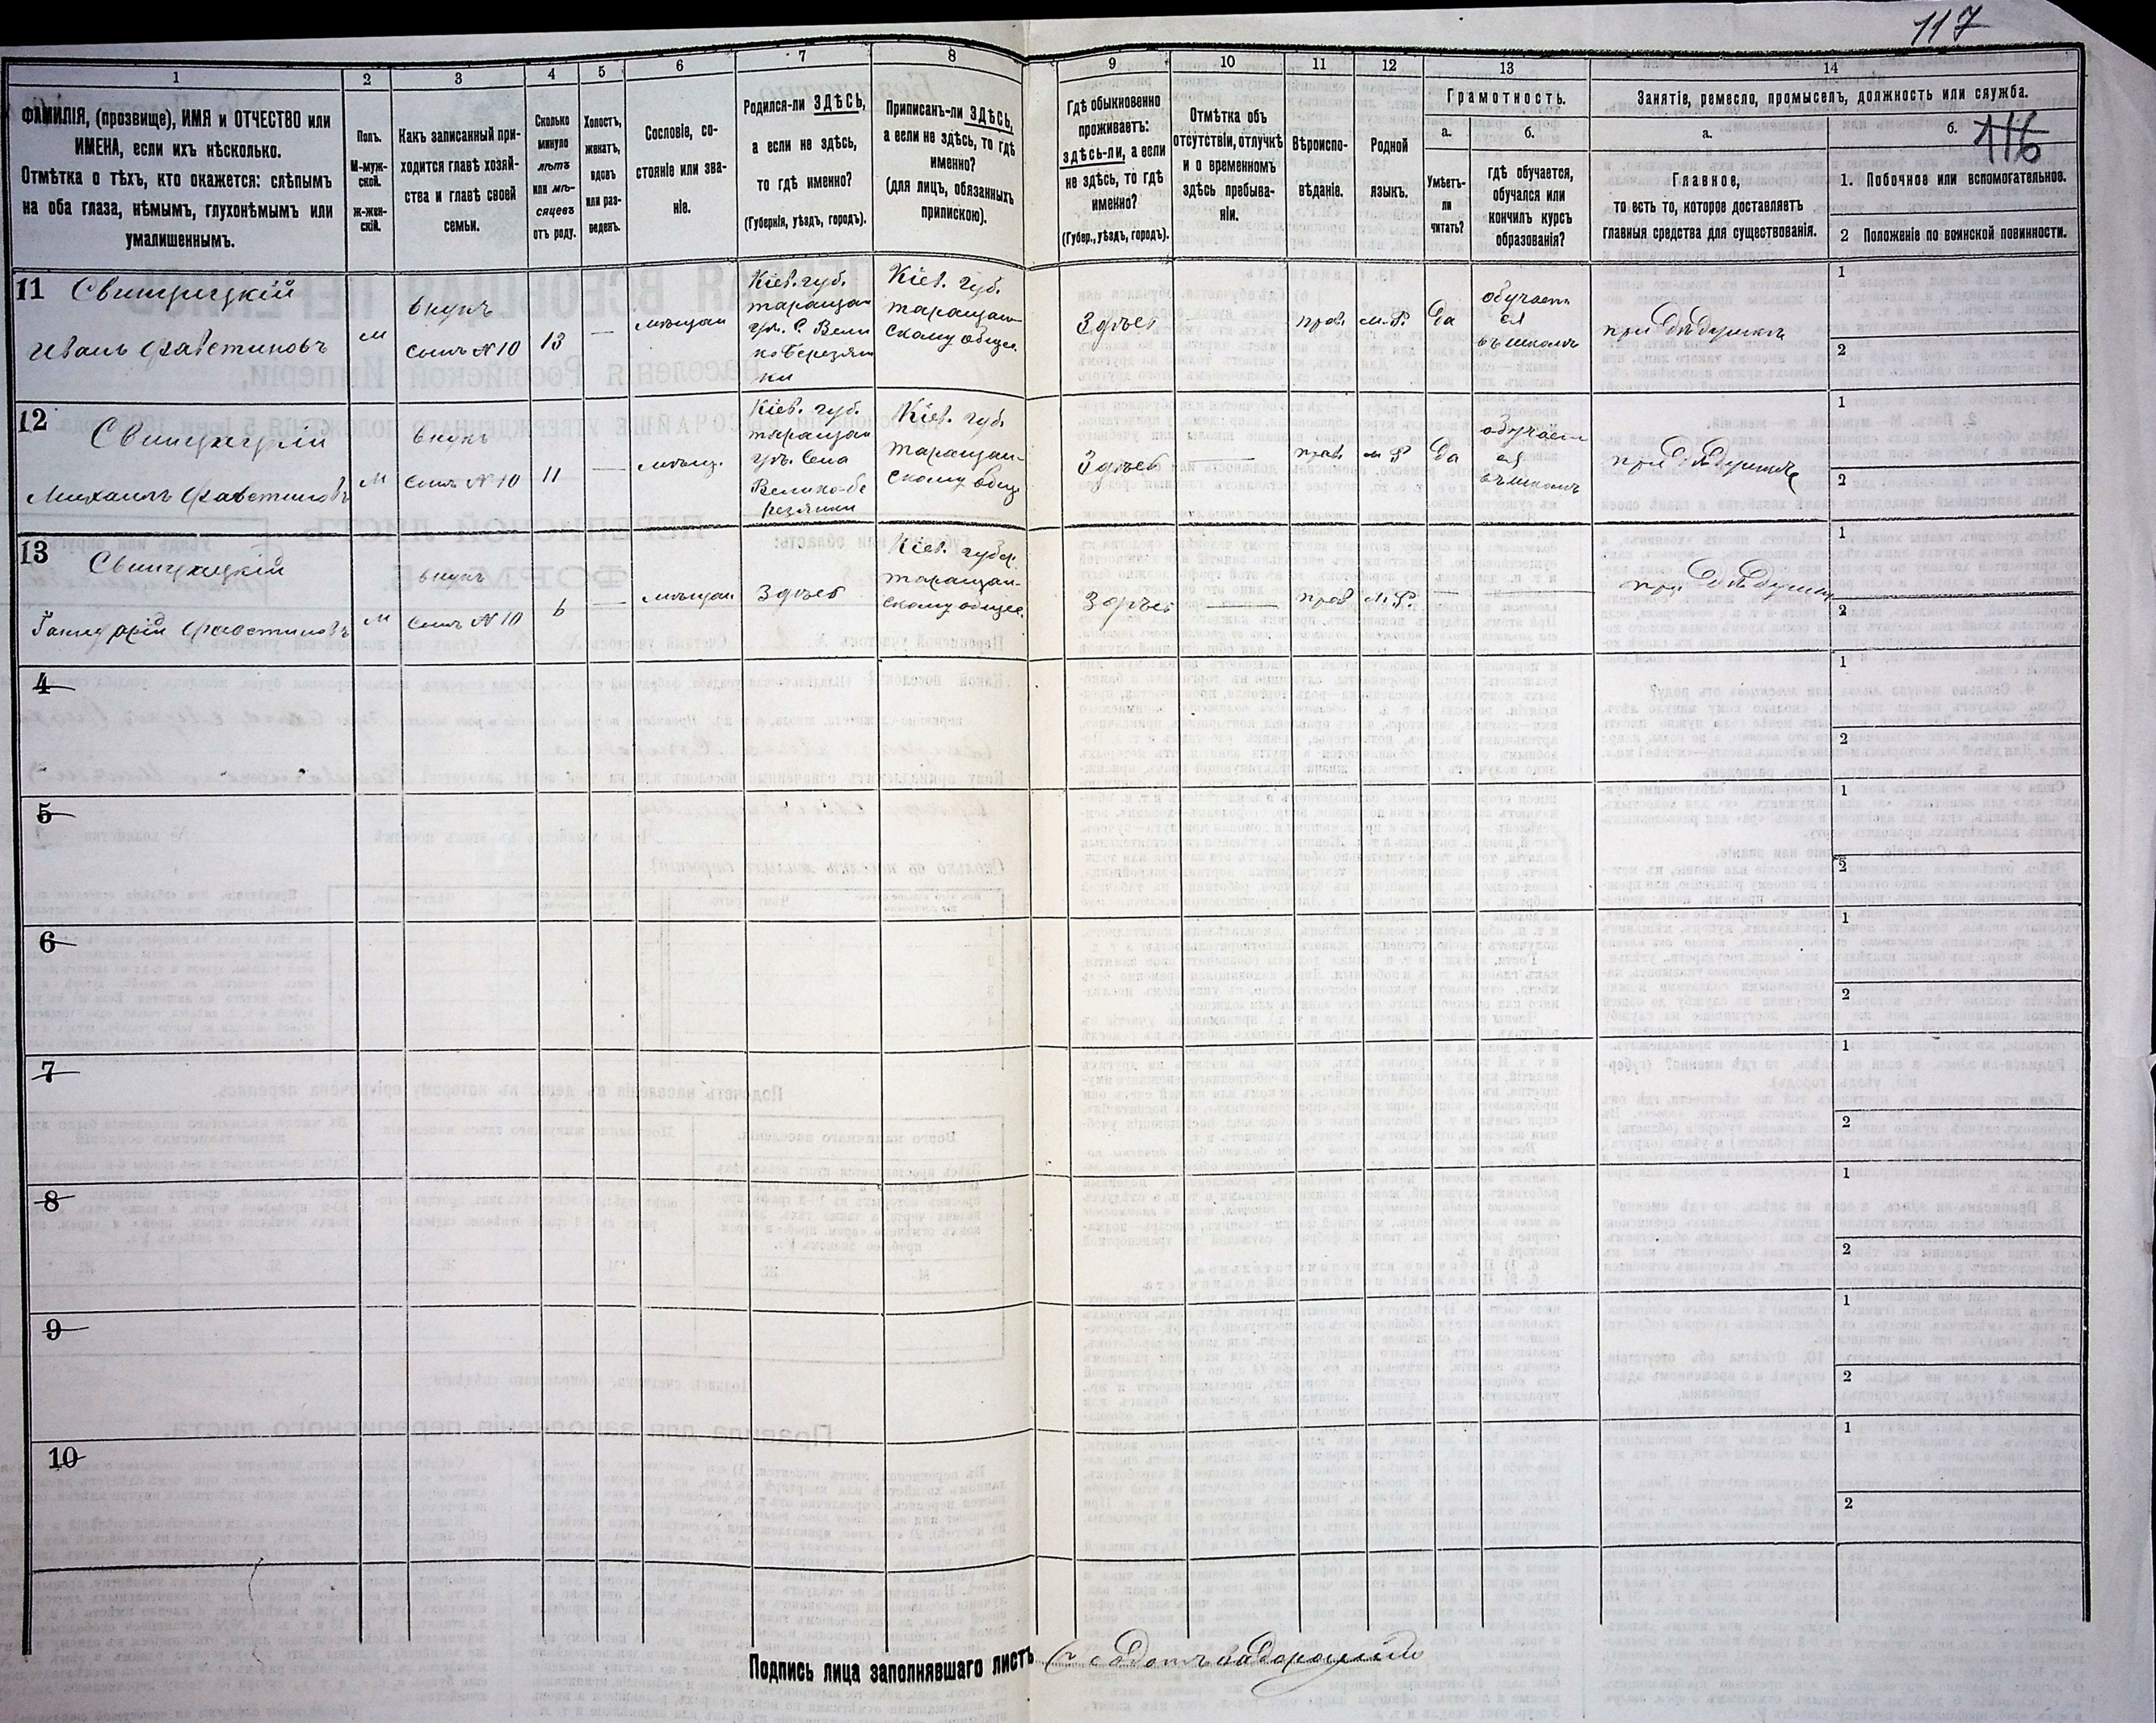 117
1
2
3
4
5
6
7
8
9
10
11
12
13
14
ФАМИЛІЯ, (прозвище), ИМЯ и ОТЧЕСТВО или
ИМЕНА, если ихъ нѣсколько.
Отмѣтка о тѣхъ, кто окажется: слѣпымъ
на оба глаза, нѣмымъ, глухонѣмымъ или
умалишеннымъ.
Полъ.
М-муж-
ской.
ж-жен-
скій.
Какъ записанный при-
ходится главѣ хозяй-
ства и главѣ своей
семьи.
Сколько
минуло
лѣтъ
или мѣ-
сяцевъ
отъ роду.
Холостъ,
женатъ,
вдовъ
или раз-
веденъ.
Сословіе, со-
стояніе или зва-
ніе.
Родился-ли ЗДѢСЬ,
а если не здѣсь,
то гдѣ именно?
(Губернія, уѣздъ, городъ).
Приписанъ-ли ЗДѢСЬ,
а если не здѣсь, то гдѣ
именно?
(для лицъ, обязанныхъ
припискою).
Гдѣ обыкновенно
проживаетъ:
здѣсь-ли, а если
не здѣсь, то гдѣ
именно?
(Губер., уѣздъ, городъ).
Отмѣтка объ
отсутствіи, отлучкѣ
и о временномъ
здѣсь пребыва-
ніи.
Вѣроиспо-
вѣданіе.
Родной
языкъ.
Грамотность.
а.
Умѣетъ-
ли
читать?
б.
гдѣ обучается,
обучался или
кончилъ курсъ
образованія?
Занятіе, ремесло, промыселъ, должность или служба.
а.
Главное,
то есть то, которое доставляетъ
главныя средства для существованія.
б.
116
1. Побочное или вспомогательное.
2 Положеніе по воинской повинности.
11 Свинцицкій
Иванъ Фавстиновъ
м
внукъ
сынъ №10
13
—
мѣщан
Кіев. губ.
таращан
у. с. Вели
ко Березян
ки
Кіев. губ.
таращан-
скому общес.
Здѣсь
прав.
м. Р.
да
обучает
ся
въ школѣ
при дѣдушкѣ
1
2
12 Свинцицкій
Михаилъ Фавстиновъ
м
внукъ
сынъ №10
11
—
мѣщ.
Кіев. губ.
таращан
у. села
Велико-бе
резянки
Кіев. губ.
таращан-
скому общ.
Здѣсь
—
прав.
м Р
да
обучает
ся
въ школѣ
при дѣдушкѣ
1
2
13 Свинцицкій
Фавстиновъ
м
внукъ
сынъ №10
6
—
мѣщан
Здѣсь
Кіев. губер.
таращан-
скому общес.
Здѣсь
—
прав
М. Р.
—
—
при дѣдушкѣ
1
2
4
1
2
5
1
2
6
1
2
7
1
2
8
1
2
9
1
2
10
1
2
Подпись лица заполнявшаго листъ